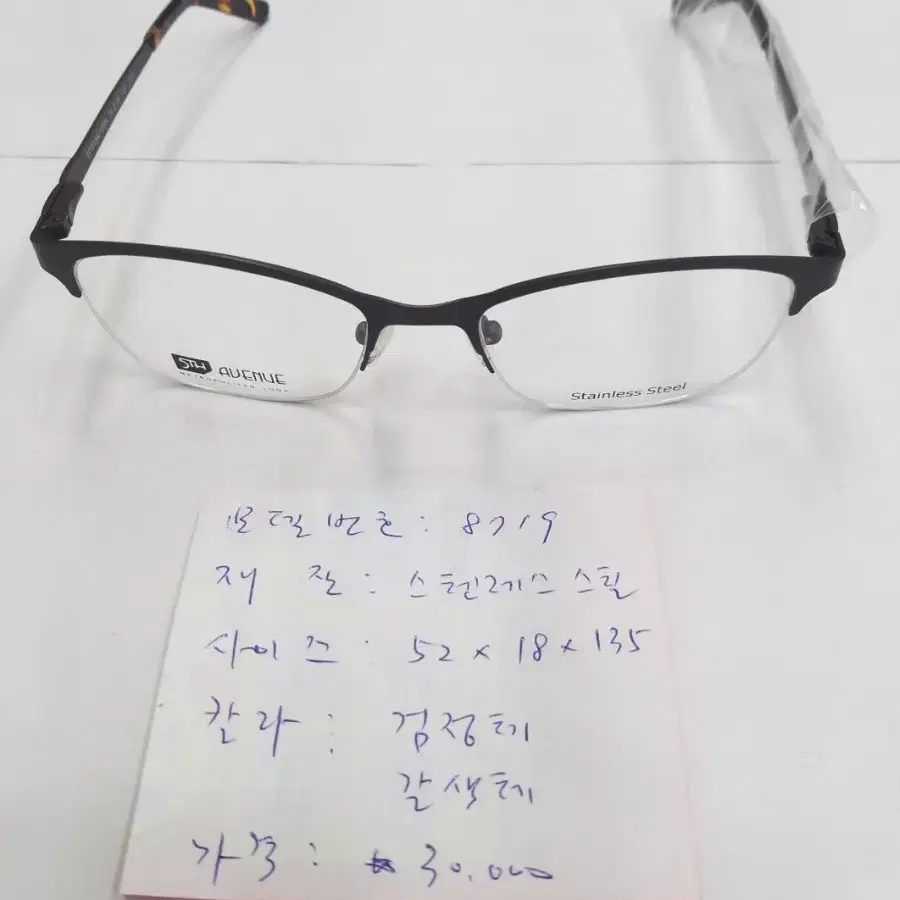 5TH AVENUE
METROPOLITAN LOOK
Stainless Steel
모델번호 : 8719
재 질 : 스텐레스 스틸
사이즈 : 52 x 18 x 135
칼라 : 검정테
갈색테
가격 : ₩30,000